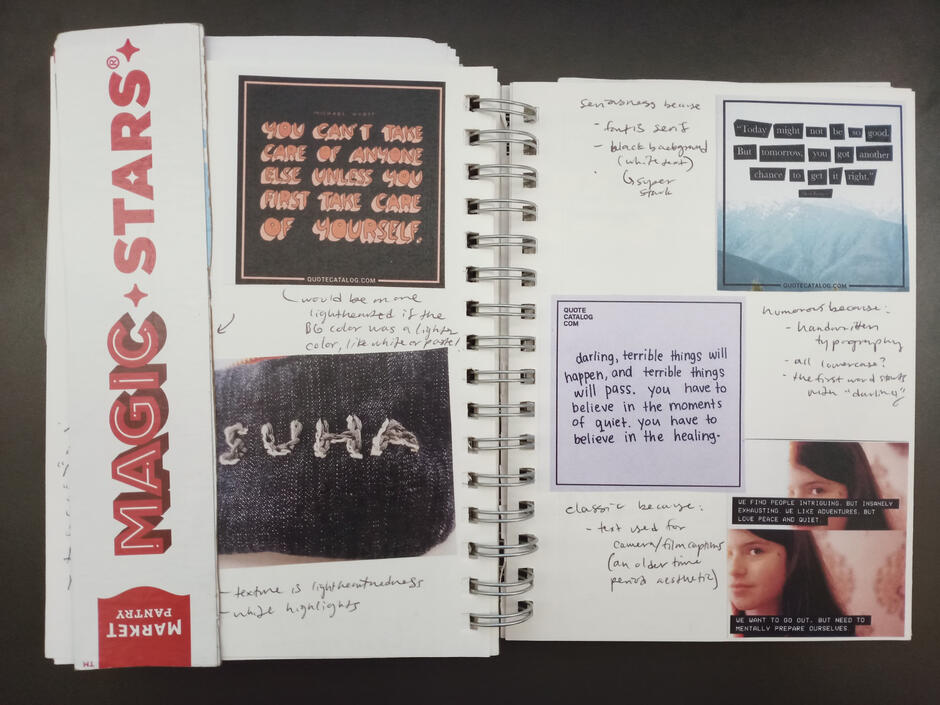 MAGIC ✦ STARS®✦
MARKET
PANTRY
™
MICHAEL HYATT
YOU CAN'T TAKE
CARE OF ANYONE
ELSE UNLESS YOU
FIRST TAKE CARE
OF YOURSELF.
QUOTECATALOG.COM
would be more
lighthearted if the
BG color was a lighter
color, like white or pastel!
SUHA
- texture is lightheartnedness
- white highlights
seriousness because
- font is serif
- black background
(white text)
↳ super
stark
"Today might not be so good.
But tomorrow, you got another
chance to get it right."
QUOTECATALOG.COM
QUOTE
CATALOG
COM
darling, terrible things will
happen, and terrible things
will pass. you have to
believe in the moments
of quiet. you have to
believe in the healing.
humorous because:
- handwritten
typography
- all lowercase?
- the first word starts
with "darling"
classic because:
- text used for
camera/film captions
(an older time
period aesthetic)
WE FIND PEOPLE INTRIGUING, BUT INSANELY
EXHAUSTING. WE LIKE ADVENTURES, BUT
LOVE PEACE AND QUIET.
WE WANT TO GO OUT, BUT NEED TO
MENTALLY PREPARE OURSELVES.